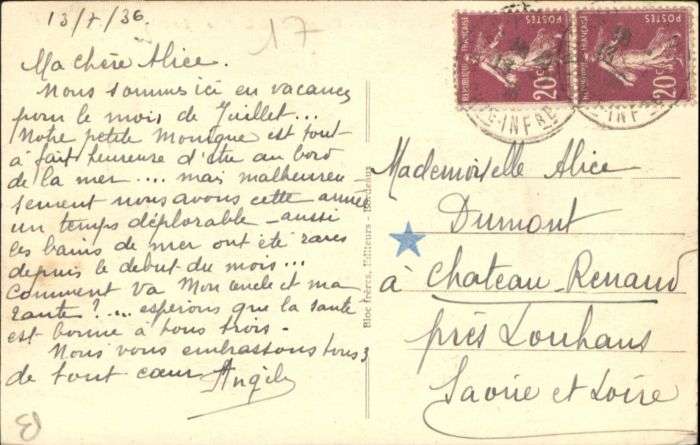 13/7/36.
17
Ma chère Alice.
Nous sommes ici en vacances
pour le mois de Juillet...
Notre petite Monique est tout
à fait heureuse d'être au bord
de la mer .... mais malheureu-
sement nous avons cette année
un temps déplorable - aussi
les bains de mer ont été rares
depuis le debut du mois...
Comment va Mon oncle et ma
tante? .... espérons que la santé
est bonne à tous trois -
Nous vous embrassons tous 3
de tout cœur
Bloc Frères, Editeurs - Bordeaux
REPUBLIQUE FRANÇAISE
POSTES
20c
REPUBLIQUE FRANÇAISE
POSTES
20c
INFRE
Mademoiselle Alice
Dumont
à Chateau-Renaud
près Louhans
Saone et Loire